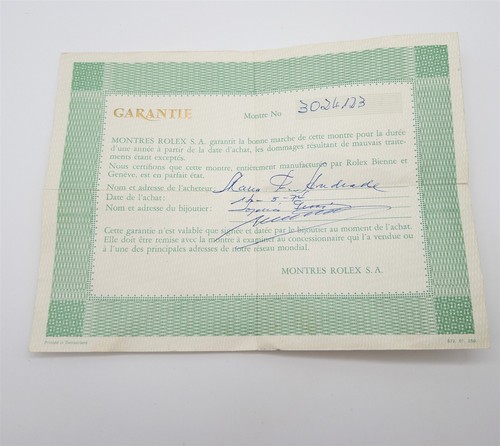 GARANTIE
Montre No 3024123
MONTRES ROLEX S.A. garantit la bonne marche de cette montre pour la durée
d'une année à partir de la date d'achat, les dommages résultant de mauvais traite-
ments étant exceptés.
Nous certifions que cette montre, entièrement manufacturée par Rolex Bienne et
Genève, est en parfait état.
Nom et adresse de l'acheteur: Mario Andrade
Date de l'achat:
Nom et adresse du bijoutier:
Cette garantie n'est valable que signée et datée par le bijoutier au moment de l'achat.
Elle doit être remise avec la montre à examiner au concessionnaire qui l'a vendue ou
à l'une des principales adresses de notre réseau mondial.
MONTRES ROLEX S.A.
Printed in Switzerland